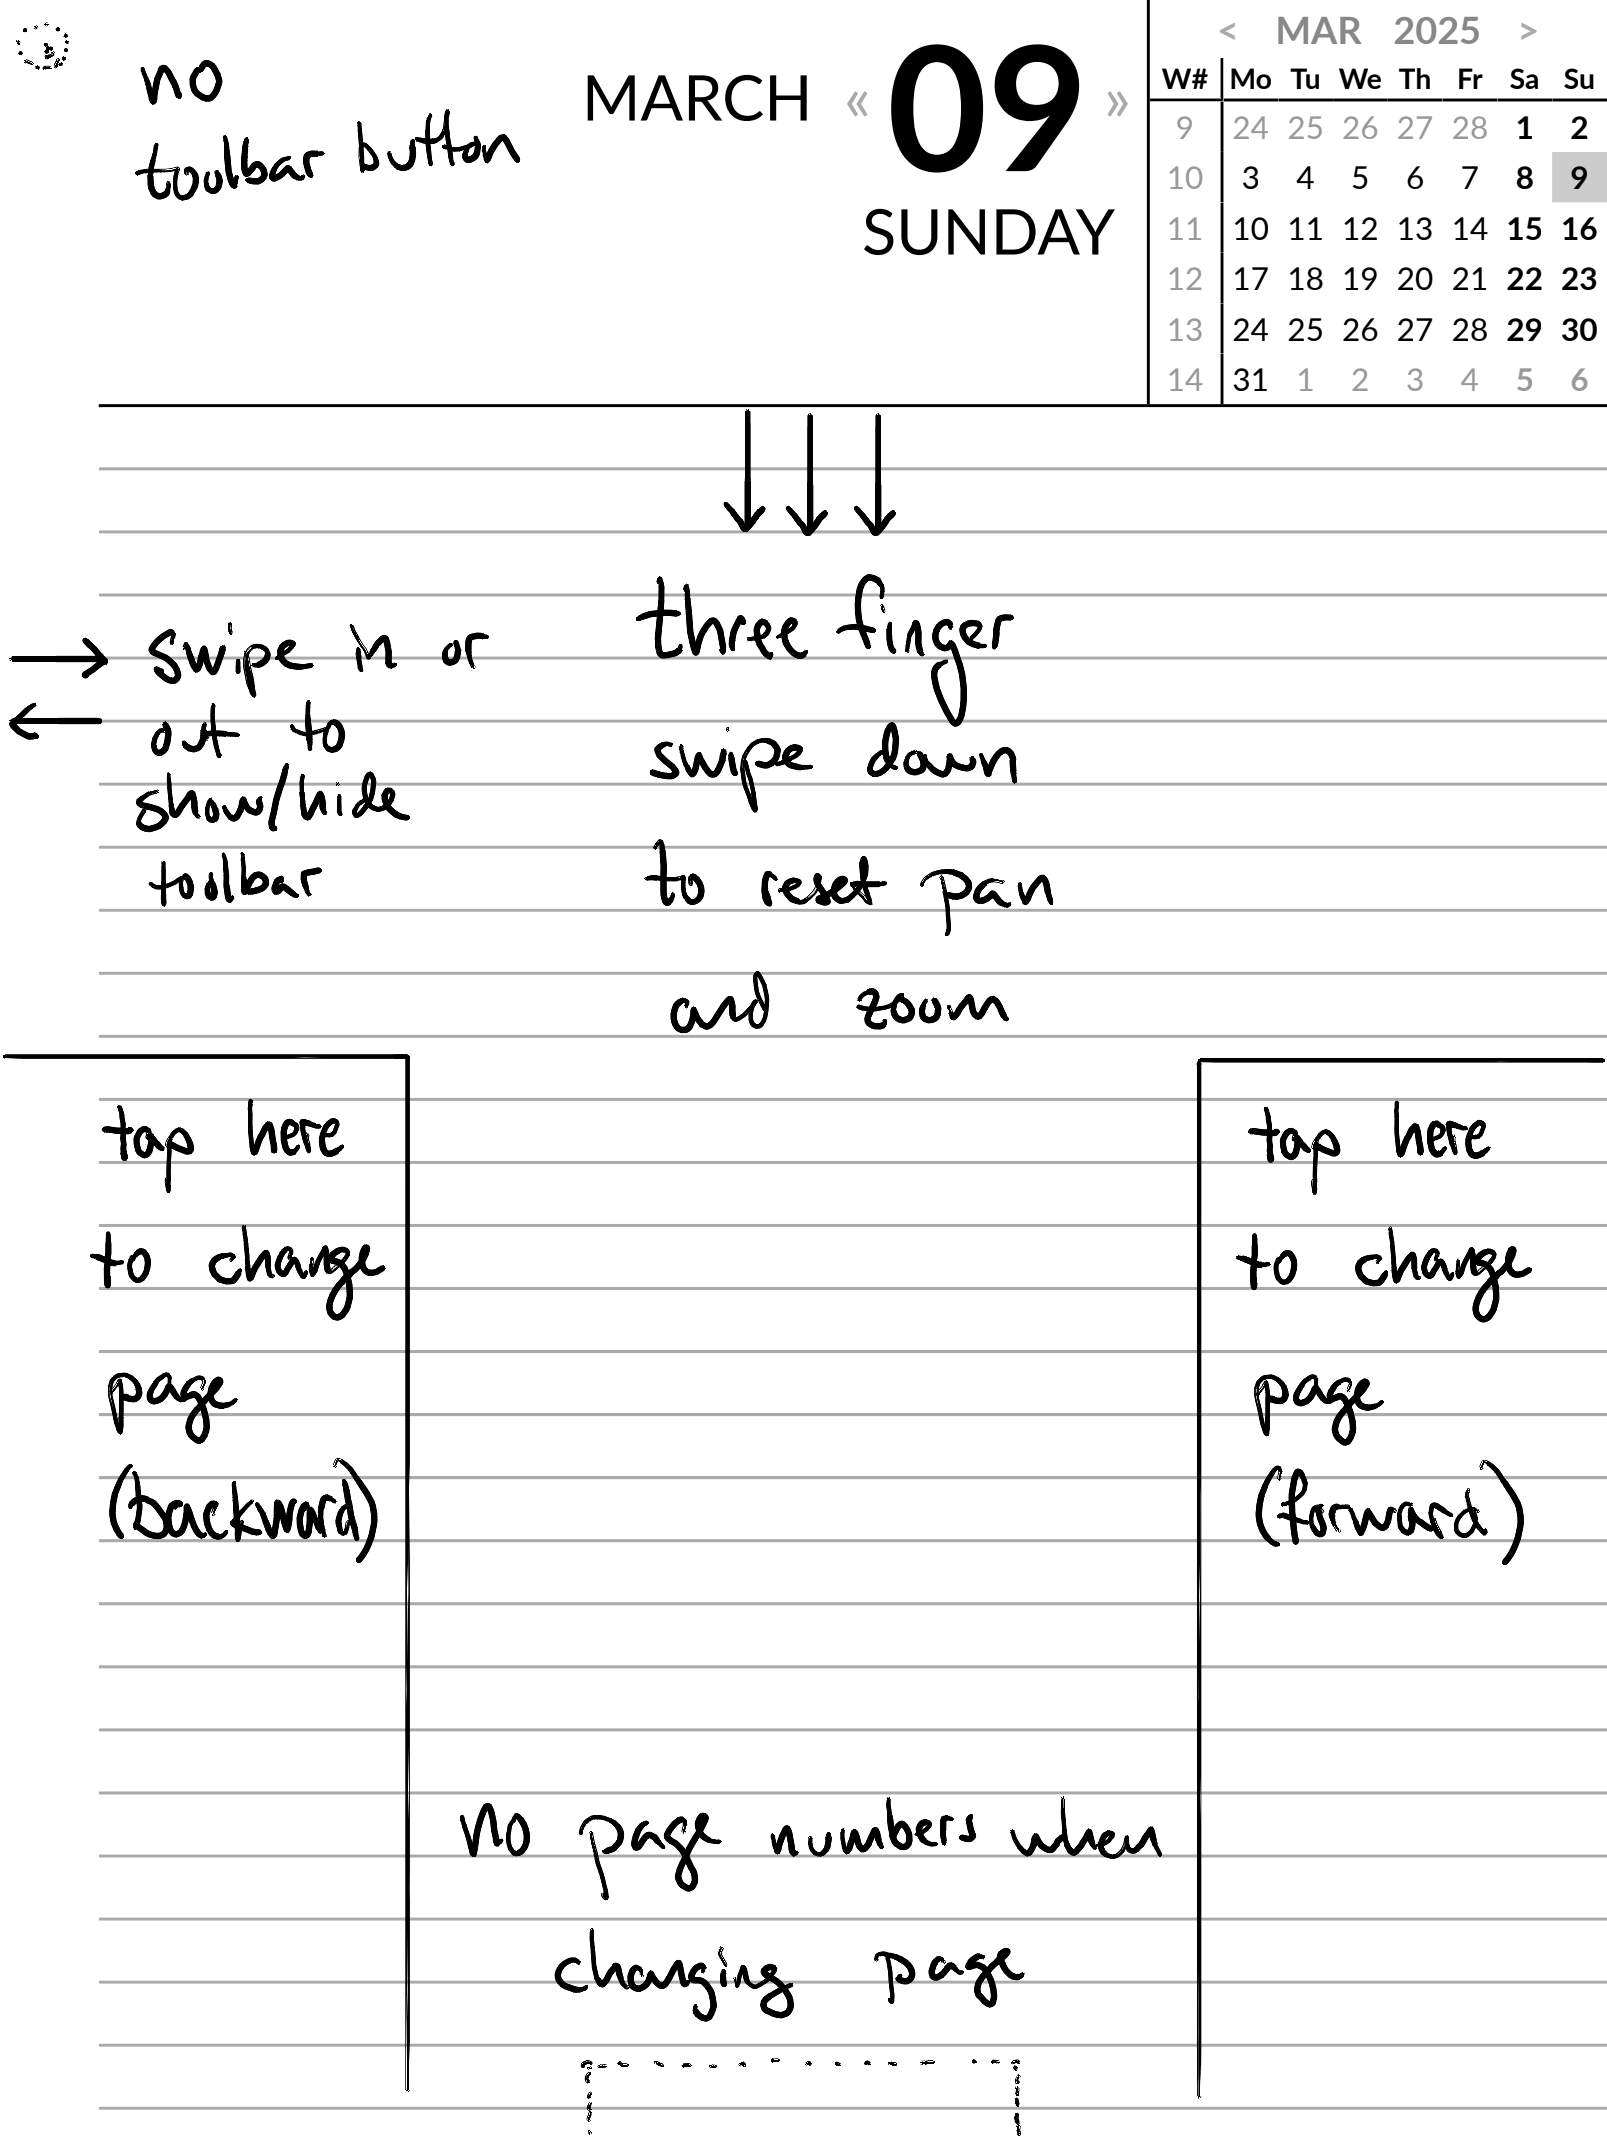 no
toolbar button
MARCH « 09 »
SUNDAY
< MAR 2025 >
W# Mo Tu We Th Fr Sa Su
9 24 25 26 27 28 1 2
10 3 4 5 6 7 8 9
11 10 11 12 13 14 15 16
12 17 18 19 20 21 22 23
13 24 25 26 27 28 29 30
14 31 1 2 3 4 5 6
swipe in or
out to
show/hide
toolbar
three finger
swipe down
to reset pan
and zoom
tap here
to change
page
(backward)
tap here
to change
page
(forward)
no page numbers when
changing page